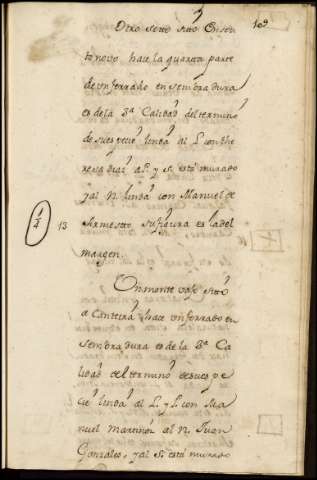 109
Otro setto sitto Ensen
to novo hace la quarta parte
de un ferrado en sembradura
es de la 3ª Calidad del termino
de su especie linda al L. con the
resa diaz a P. y S. está murado
y al N. linda con Manuel de
Armestto su figura es la del
margen.
1/2
13
Un monte vajo sitto
a Canteira hace un ferrado en
sembradura es de la 3ª Ca
lidad del termino de su espe
cie linda al L. y P. con Ma
nuel Martinez al N. Juan
Gonzales, y al S. está murado